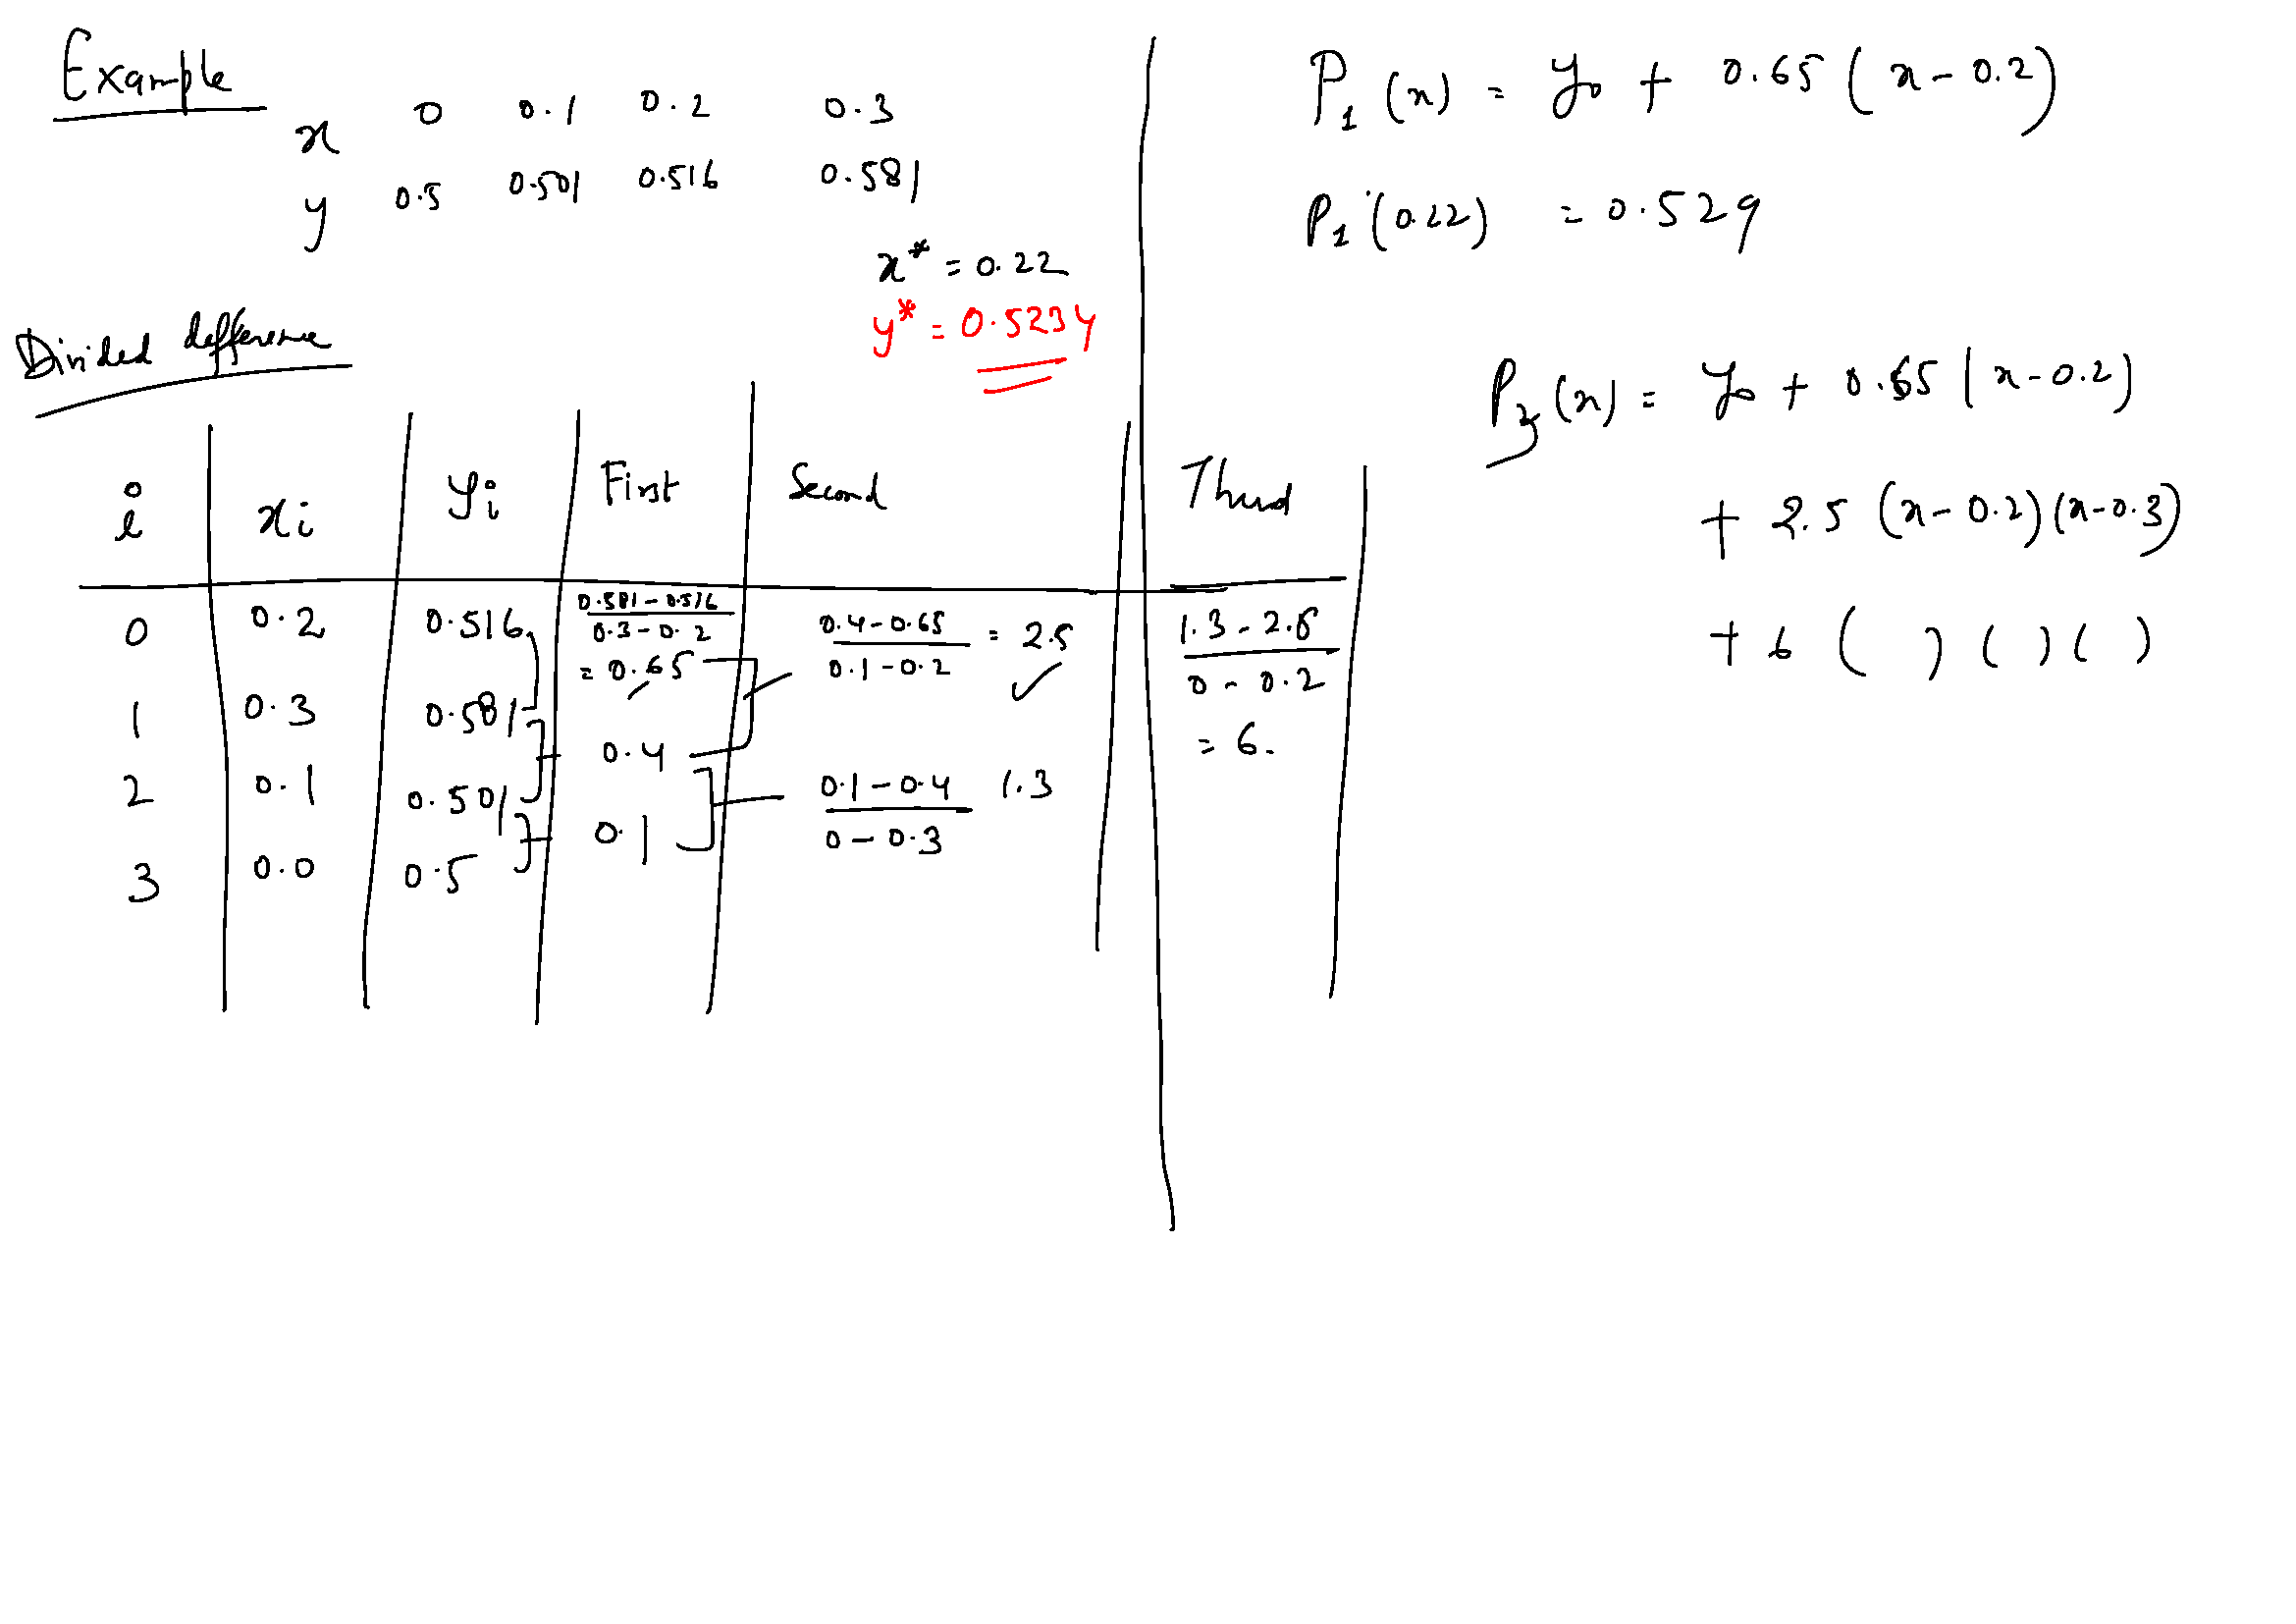 Example
x 0 0.1 0.2 0.3
y 0.5 0.501 0.516 0.581
x* = 0.22
y* = 0.5234
Divided difference
i xi yi First Second Third
0 0.2 0.516 (0.581 - 0.516)/(0.3 - 0.2) = 0.65 (0.4 - 0.65)/(0.1 - 0.2) = 2.5 ✓ (1.3 - 2.5)/(0 - 0.2) = 6.
1 0.3 0.581 0.4 (0.1 - 0.4)/(0 - 0.3) 1.3
2 0.1 0.501 0.1
3 0.0 0.5
P1 (x) = y0 + 0.65 (x - 0.2)
P1 (0.22) = 0.529
P3 (x) = y0 + 0.65 (x - 0.2)
+ 2.5 (x - 0.2) (x - 0.3)
+ 6 ( ) ( ) ( )